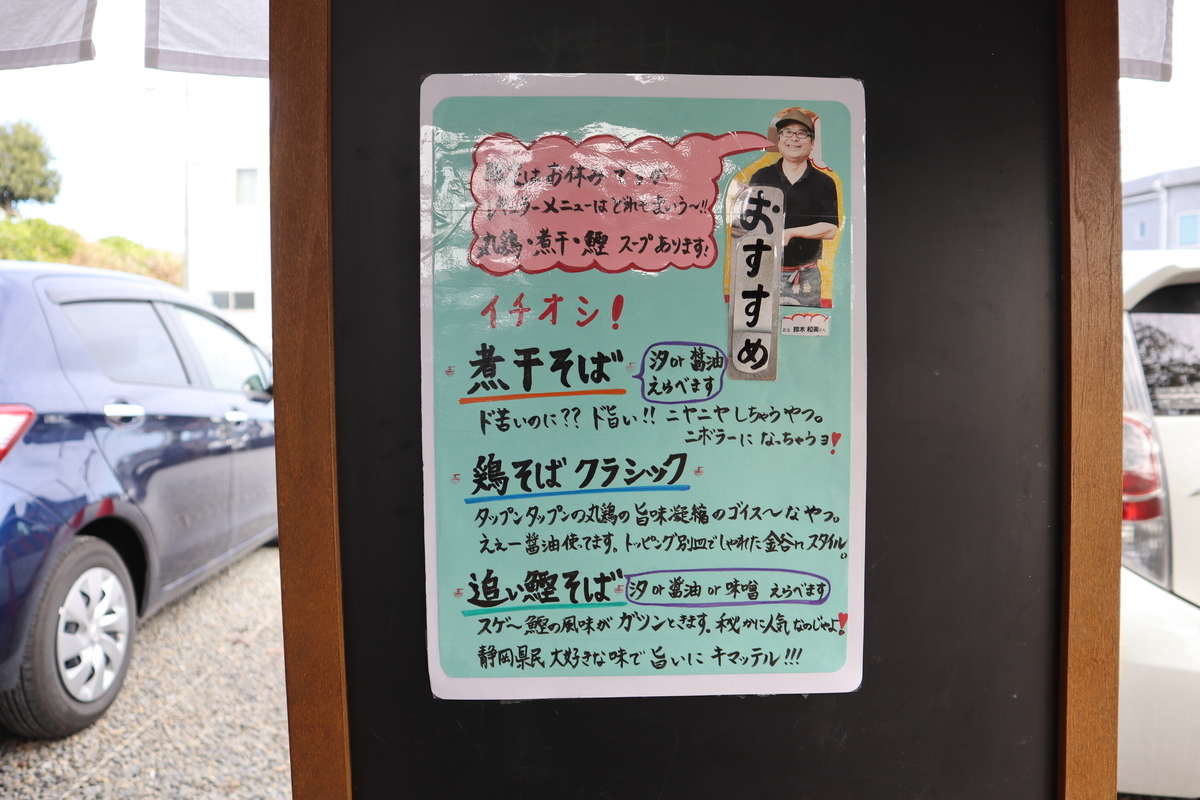 はお休みですが
レギュラーメニューはどれもまいう〜!!
丸鶏・煮干・鰹 スープあります!
おすすめ
鈴木 和美さん
イチオシ!
煮干そば
汐 or 醤油
えらべます
ド苦いのに?? ド旨い!! ニヤニヤしちゃうやつ。
ニボラーになっちゃうヨ!
鶏そば クラシック
タップンタップンの丸鶏の旨味凝縮のゴイス〜なやつ。
ええー醤油使ってます。トッピング別皿でしゃれた金谷nスタイル。
追い鰹そば
汐 or 醤油 or 味噌 えらべます
スゲ〜鰹の風味がガツンときます。秘かに人気なのじゃよ!
静岡県民大好きな味で旨いにキマッテル!!!